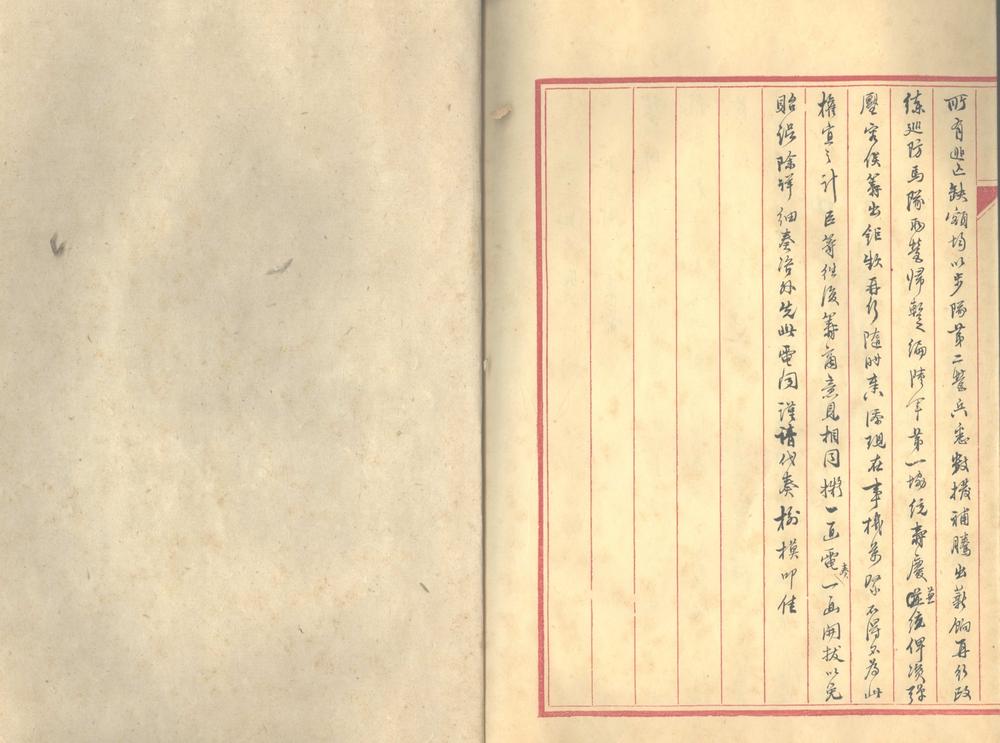 所有逃亡缺額均以步隊第二營兵悉數撥補騰出薪餉再行改
練巡防馬隊兩營歸暫編陸軍第一協統壽慶兼統俾資彈
壓容俟籌出鉅款再行隨時奏添現在事機緊不得不為此
權宜之計臣等往復籌商意見相同擬一面電奏一面開拔以免
貽誤除詳細奏咨外先此電聞謹請代奏樹模叩佳